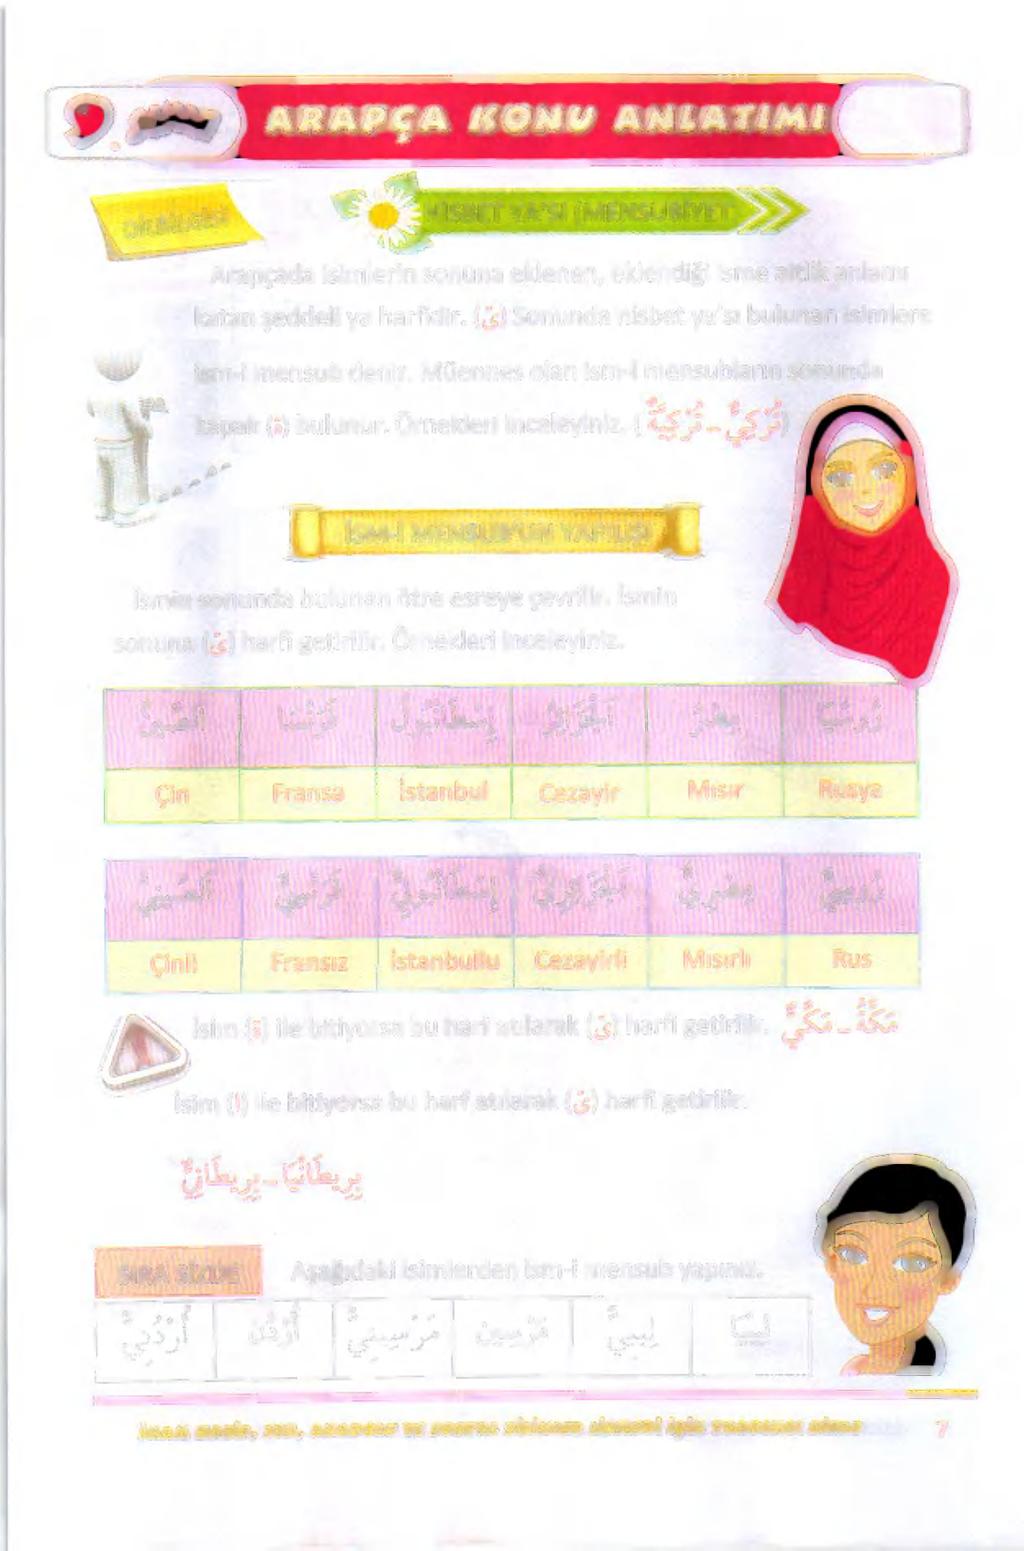 9. ARAPÇA KONU ANLATIMI
DİLBİLGİSİ
NİSBET YA'SI (MENSUBİYET)
Arapçada isimlerin sonuna eklenen, eklendiği isme aitlik anlamı
katan şeddeli ya harfidir. (يّ) Sonunda nisbet ya'sı bulunan isimlere
ism-i mensub denir. Müennes olan ism-i mensubların sonunda
kapalı (ة) bulunur. Örnekleri inceleyiniz. (تُرْكِيٌّ - تُرْكِيَّةٌ)
İSM-İ MENSUB'UN YAPILIŞI
İsmin sonunda bulunan ötre esreye çevrilir. İsmin
sonuna (يّ) harfi getirilir. Örnekleri inceleyiniz.
رُوسْيَا مِصْرُ اَلْجَزَائِرُ إِسْطَانْبُولُ فَرَنْسَا اَلصِّينُ
Çin Fransa İstanbul Cezayir Mısır Rusya
رُوسِيٌّ مِصْرِيٌّ اَلْجَزَائِرِيُّ إِسْطَانْبُولِيٌّ فَرَنْسِيٌّ اَلصِّينِيُّ
Çinli Fransız İstanbullu Cezayirli Mısırlı Rus
İsim (ة) ile bitiyorsa bu harf atılarak (يّ) harfi getirilir. مَكَّةُ - مَكِّيٌّ
İsim (ا) ile bitiyorsa bu harf atılarak (يّ) harfi getirilir.
بِرِيطَانْيَا - بِرِيطَانِيٌّ
SIRA SİZDE
Aşağıdaki isimlerden ism-i mensub yapınız.
لِيبْيَا لِيبِيٌّ مَرْسِين مَرْسِينِيٌّ أُرْدُن أُرْدُنِيٌّ
7